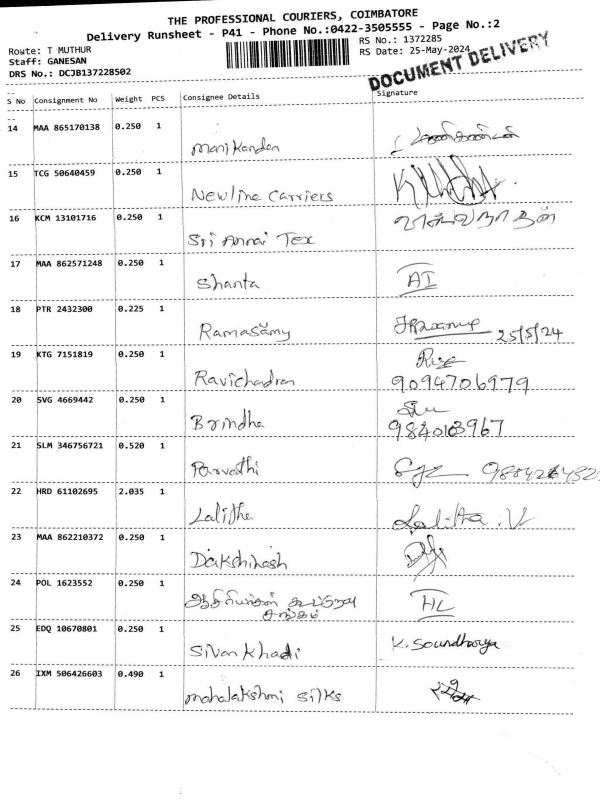 THE PROFESSIONAL COURIERS, COIMBATORE
Delivery Runsheet - P41 - Phone No.:0422-3505555 - Page No.:2
Route: T MUTHUR
RS No.: 1372285
Staff: GANESAN
RS Date: 25-May-2024
DRS No.: DCJB137228502
DOCUMENT DELIVERY
S No Consignment No Weight PCS Consignee Details Signature
14 MAA 865170138 0.250 1
Manikandan
15 TCG 50640459 0.250 1
Newline Carriers
16 KCM 13101716 0.250 1
Sri Annai Tex
17 MAA 862571248 0.250 1
Shanta AI
18 PTR 2432300 0.225 1
Ramasamy 25/5/24
19 KTG 7151819 0.250 1
Ravichandran 9094706979
20 SVG 4669442 0.250 1
Brindha
21 SLM 346756721 0.520 1
Parvathi
22 HRD 61102695 2.035 1
Lalitha Lalitha. V
23 MAA 862210372 0.250 1
Dakshinesh
24 POL 1623552 0.250 1
கூட்டுறவு HL
சங்கம்
25 EDQ 10670801 0.250 1
Sivan Khadi K. Soundharya
26 IXM 506426603 0.490 1
Mahalakshmi Silks